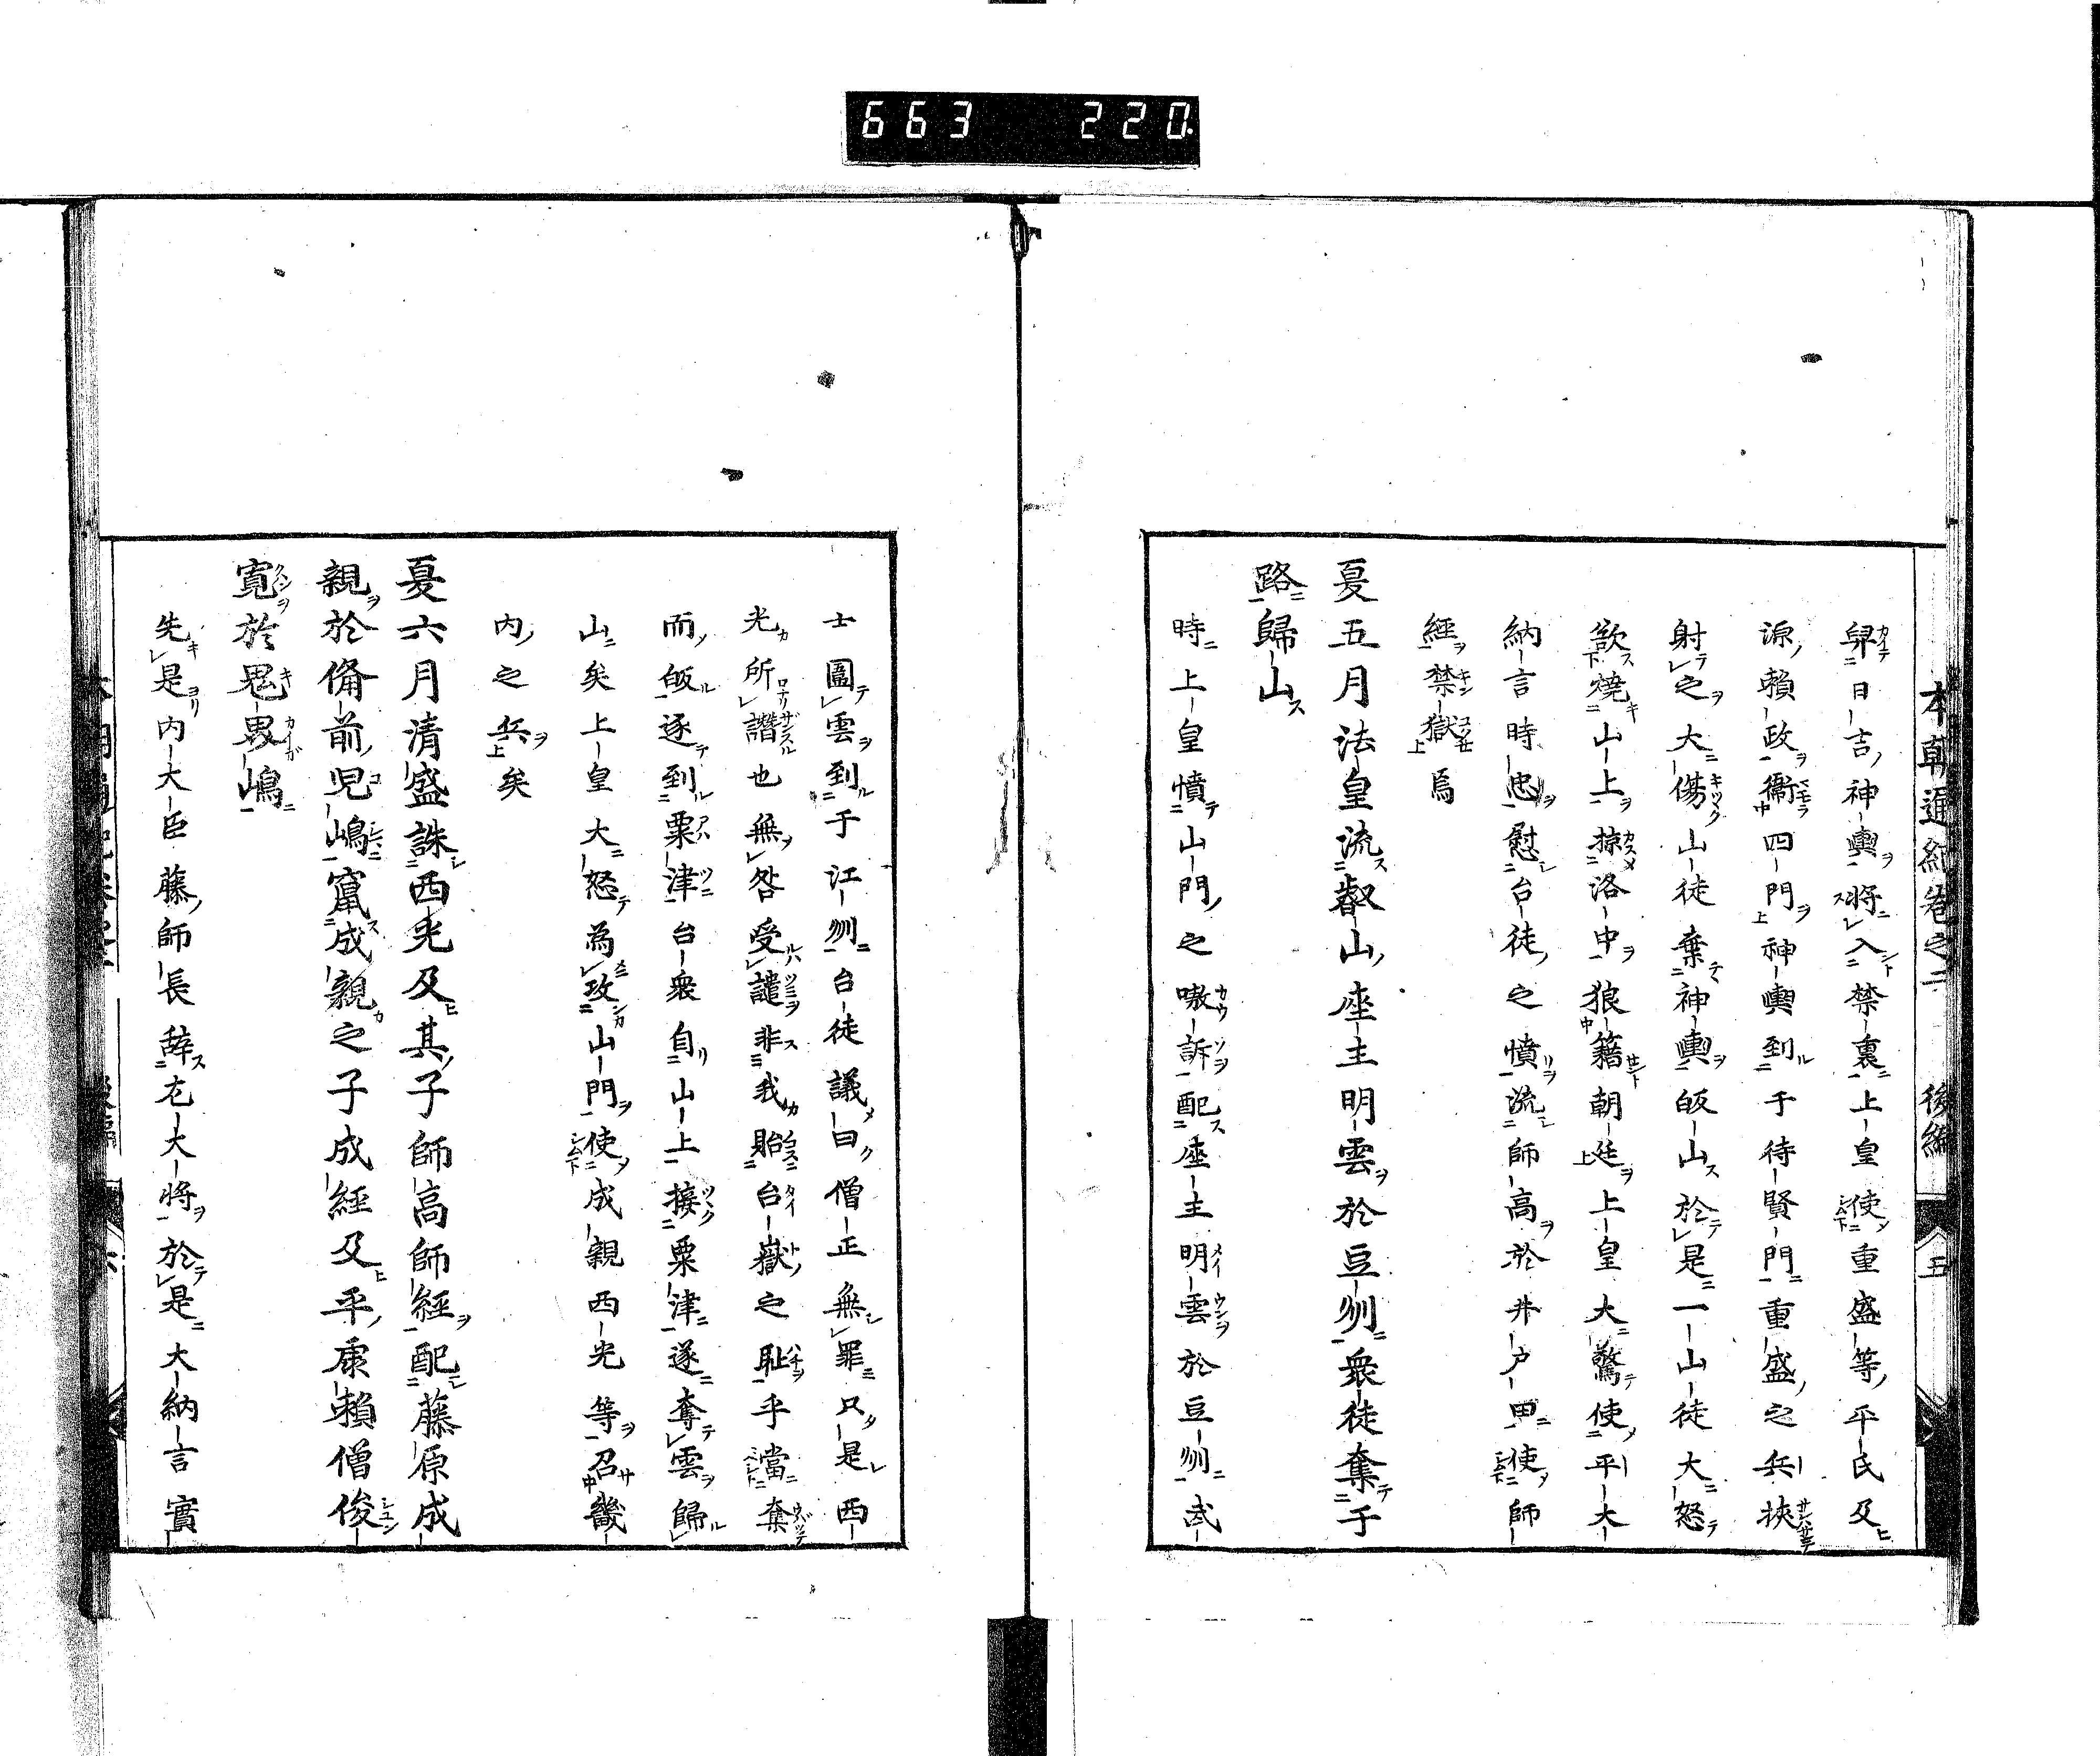 663 220
本朝通紀卷之二 後編 五
舁日吉神輿將入禁裏上皇使重盛等平氏及
源賴政衞四門神輿到于待賢門重盛之兵挾
射之大傷山徒棄神輿皈山於是一山徒大怒
欲燒山上掠洛中狼籍朝廷上皇大驚使平大
納言時忠慰台徒之憤流師高於井戸田使師
經禁獄焉
夏五月法皇流叡山座主明雲於豆州衆徒奪于
路歸山
時上皇憤山門之嗷訴配座主明雲於豆州武
士圍雲到于江州台徒議曰僧正無罪只是西
光所譖也無咎受譴非我貽台嶽之恥乎當奪
而皈遂到粟津台衆自山上接粟津遂奪雲歸
山矣上皇大怒為攻山門使成親西光等召畿
内之兵矣
夏六月清盛誅西光及其子師高師經配藤原成
親於備前児嶋竄成親之子成經及平康賴僧俊
寬於鬼界嶋
先是内大臣藤師長辭左大將於是大納言實